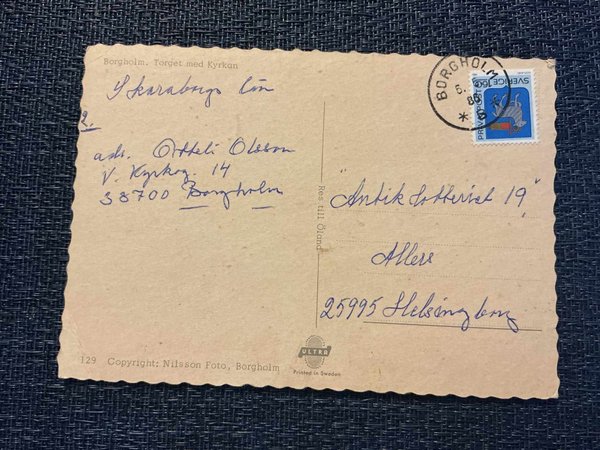 Borgholm. Torget med Kyrkan
Skaraborgs län
2.
ads. Otteli Olsson
V. Kyrkog. 14
38700 Borgholm
129 Copyright: Nilsson Foto, Borgholm
Res till Öland
ULTRA
Printed in Sweden
BORGHOLM
6.
86
* 6 *
SVERIGE 160
"Antik Lotteriet 19"
Allers
25995 Helsingborg